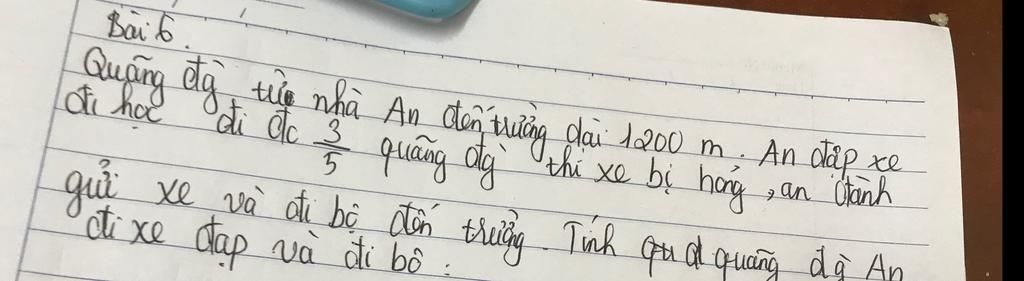 Bài 6.
Quãng đg từ nhà An đến trường dài 1200 m. An đạp xe
đi học đi đc 3/5 quãng đg thì xe bị hỏng, an đành
gửi xe và đi bộ đến trường. Tính quãng đg An
đi xe đạp và đi bô.